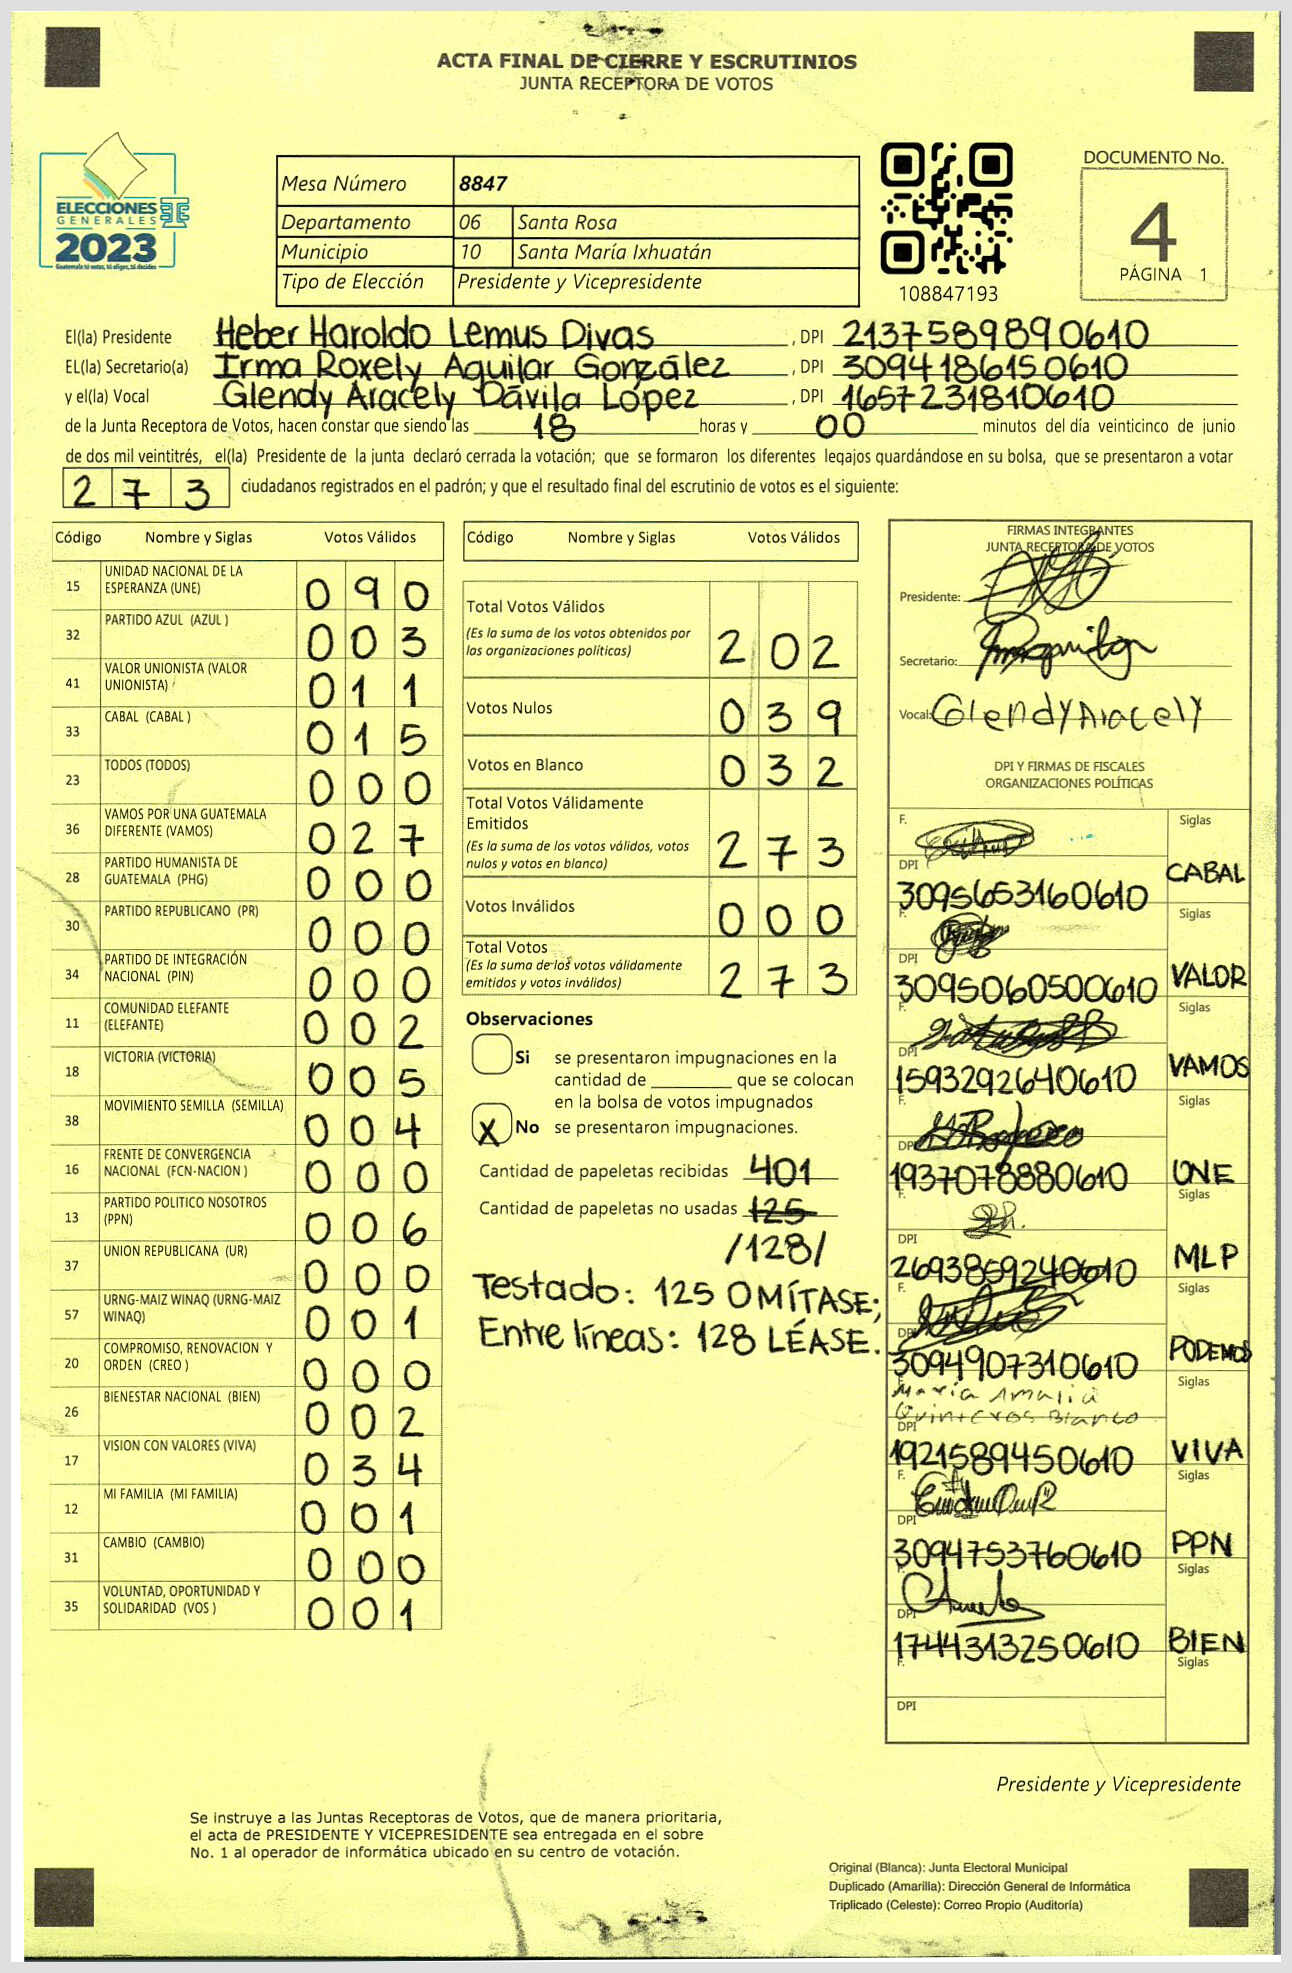 ACTA FINAL DE CIERRE Y ESCRUTINIOS
JUNTA RECEPTORA DE VOTOS
ELECCIONES
GENERALES
2023
Guatemala tú votas, tú eliges, tú decides
Mesa Número 8847
Departamento 06 Santa Rosa
Municipio 10 Santa María Ixhuatán
Tipo de Elección Presidente y Vicepresidente
108847193
DOCUMENTO No.
4
PÁGINA 1
El(la) Presidente Heber Haroldo Lemus Divas, DPI 2137589890610
EL(la) Secretario(a) Irma Roxely Aguilar González, DPI 3094186150610
y el(la) Vocal Glendy Aracely Dávila López, DPI 1657231810610
de la Junta Receptora de Votos, hacen constar que siendo las 18 horas y 00 minutos del día veinticinco de junio
de dos mil veintitrés, el(la) Presidente de la junta declaró cerrada la votación; que se formaron los diferentes legajos guardándose en su bolsa, que se presentaron a votar
273 ciudadanos registrados en el padrón; y que el resultado final del escrutinio de votos es el siguiente:
Código Nombre y Siglas Votos Válidos
15 UNIDAD NACIONAL DE LA ESPERANZA (UNE) 090
32 PARTIDO AZUL (AZUL ) 003
41 VALOR UNIONISTA (VALOR UNIONISTA) 011
33 CABAL (CABAL ) 015
23 TODOS (TODOS) 000
36 VAMOS POR UNA GUATEMALA DIFERENTE (VAMOS) 027
28 PARTIDO HUMANISTA DE GUATEMALA (PHG) 000
30 PARTIDO REPUBLICANO (PR) 000
34 PARTIDO DE INTEGRACIÓN NACIONAL (PIN) 000
11 COMUNIDAD ELEFANTE (ELEFANTE) 002
18 VICTORIA (VICTORIA) 005
38 MOVIMIENTO SEMILLA (SEMILLA) 004
16 FRENTE DE CONVERGENCIA NACIONAL (FCN-NACION ) 000
13 PARTIDO POLITICO NOSOTROS (PPN) 006
37 UNION REPUBLICANA (UR) 000
57 URNG-MAIZ WINAQ (URNG-MAIZ WINAQ) 001
20 COMPROMISO, RENOVACION Y ORDEN (CREO ) 000
26 BIENESTAR NACIONAL (BIEN) 002
17 VISION CON VALORES (VIVA) 034
12 MI FAMILIA (MI FAMILIA) 001
31 CAMBIO (CAMBIO) 000
35 VOLUNTAD, OPORTUNIDAD Y SOLIDARIDAD (VOS ) 001
Código Nombre y Siglas Votos Válidos
Total Votos Válidos
(Es la suma de los votos obtenidos por
las organizaciones políticas) 202
Votos Nulos 039
Votos en Blanco 032
Total Votos Válidamente
Emitidos
(Es la suma de los votos válidos, votos
nulos y votos en blanco) 273
Votos Inválidos 000
Total Votos
(Es la suma de los votos válidamente
emitidos y votos inválidos) 273
Observaciones
Si se presentaron impugnaciones en la
cantidad de ________ que se colocan
en la bolsa de votos impugnados
X No se presentaron impugnaciones.
Cantidad de papeletas recibidas 401
Cantidad de papeletas no usadas 125
/128/
Testado: 125 OMÍTASE;
Entre líneas: 128 LÉASE.
FIRMAS INTEGRANTES
JUNTA RECEPTORA DE VOTOS
Presidente:
Secretario:
Vocal: Glendy Aracely
DPI Y FIRMAS DE FISCALES
ORGANIZACIONES POLÍTICAS
F. Siglas
DPI 3095653160610 CABAL
F. Siglas
DPI 3095060500610 VALOR
F. Siglas
DPI 1593292640610 VAMOS
F. Siglas
DPI 1937078880610 UNE
F. Siglas
DPI 2693859240610 MLP
F. Siglas
DPI 3094907310610 PODEMOS
F. María Amalia Siglas
Quinteros Blanco
DPI 1921589450610 VIVA
F. Siglas
DPI 3094753760610 PPN
F. Siglas
DPI 1744313250610 BIEN
F. Siglas
DPI
Presidente y Vicepresidente
Se instruye a las Juntas Receptoras de Votos, que de manera prioritaria,
el acta de PRESIDENTE Y VICEPRESIDENTE sea entregada en el sobre
No. 1 al operador de informática ubicado en su centro de votación.
Original (Blanca): Junta Electoral Municipal
Duplicado (Amarilla): Dirección General de Informática
Triplicado (Celeste): Correo Propio (Auditoría)